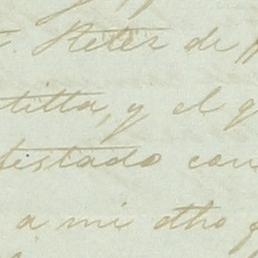 Reter de
titta, y el q
festado con
a mi dtho